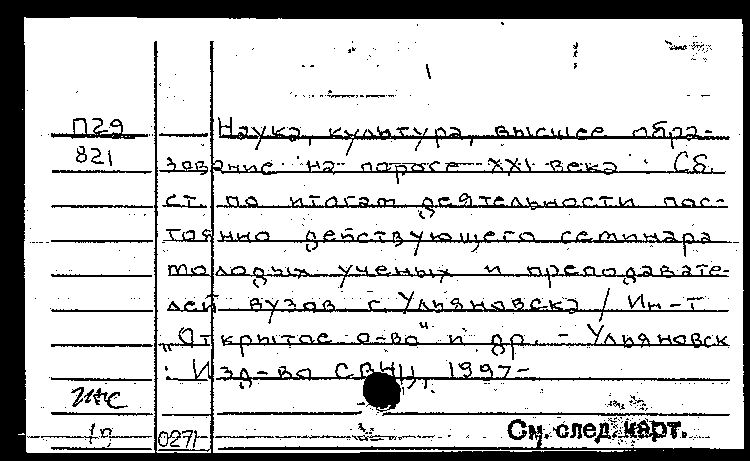 П29
821
Наука, культура, высшее обра-
зование на пороге XXI века : Сб.
ст. по итогам деятельности пос-
тоянно действующего семинара
молодых ученых и преподавате-
лей вузов г. Ульяновска / Ин-т
„Открытое о-во" и др. - Ульяновск
: Изд-во СВНЦ, 1997-
0271
См. след. карт.